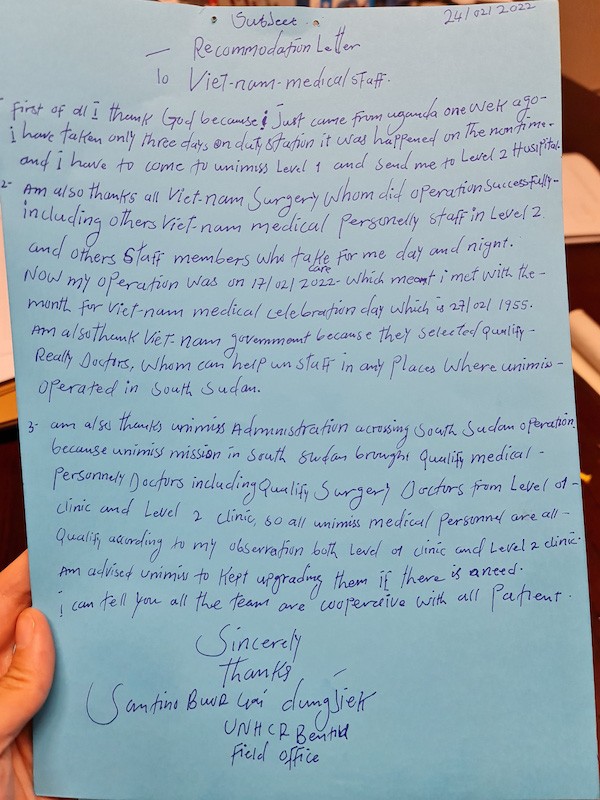 Subject :
24/02/2022
— Recommodation Letter
To Viet-nam-medical staff.
1- First of all i thank God because i Just came from uganda one wek ago-
i have taken only three days on duty station it was happened on the non time.
and i have to come to unimiss Level 1 and send me to Level 2 Huspital.
2- Am also thanks all Viet-nam Surgery Whom did operation Successfully-
including others Viet-nam medical personelly staff in Level 2
and others Staff members who take care for me day and night.
Now my operation was on 17/02/2022- which meant i met with the-
month for Viet-nam medical celebration day which is 27/02/1955.
Am also thank Viet-nam government because they selected qualify-
Really Doctors, Whom can help un staff in any places where unimiss-
operated in South Sudan.
3- am also thanks unimiss Administration acrossing South Sudan operation,
because unimiss mission in South Sudan brought Qualify medical-
Personnely Doctors including Qualify Surgery Doctors from Level 01-
clinic and Level 2 clinic, so all unimiss medical personnel are all-
Qualify acording to my observation both Level 01 clinic and Level 2 clinic.
Am advised unimiss to Kept upgrading them if there is a need.
i can tell you all the team are cooperative with all Patient.
Sincerely
Thanks
Santino Gai
UNHCR Bentiu
Field Office